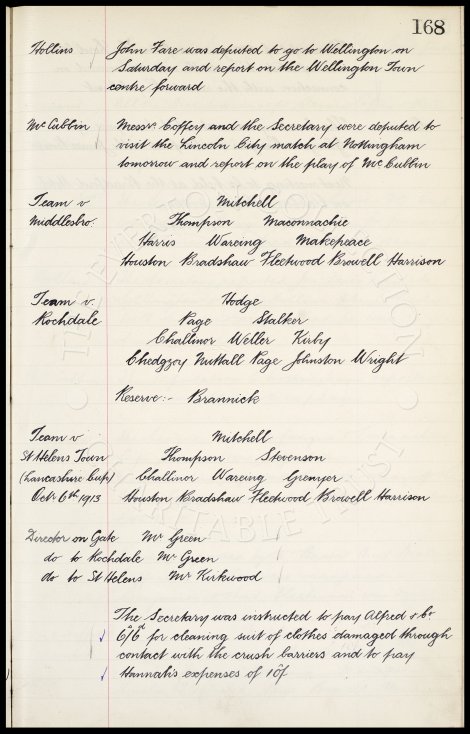 168
Hollins John Fare was deputed to go to Wellington on
Saturday and report on the Wellington Town
centre forward
McCubbin Messrs. Coffey and the Secretary were deputed to
visit the Lincoln City match at Nottingham
tomorrow and report on the play of McCubbin
Team v Mitchell
Middlesbro. Thompson Maconnachie
Harris Wareing Makepeace
Houston Bradshaw Fleetwood Browell Harrison
Team v. Hodge
Rochdale Page Stalker
Challinor Weller Kirby
Chedgzoy Nuttall Page Johnston Wright
Reserve:- Brannick
Team v Mitchell
St Helens Town Thompson Stevenson
(Lancashire Cup) Challinor Wareing Grenyer
Octr. 6th 1913 Houston Bradshaw Fleetwood Browell Harrison
Director on Gate Mr Green
do to Rochdale Mr Green
do to St Helens Mr Kirkwood
The Secretary was instructed to pay Alfred & Co
6s/6d for cleaning suit of clothes damaged through
contact with the crush barriers and to pay
Hannah's expenses of
EVERTON COLLECTION
CHARITABLE TRUST